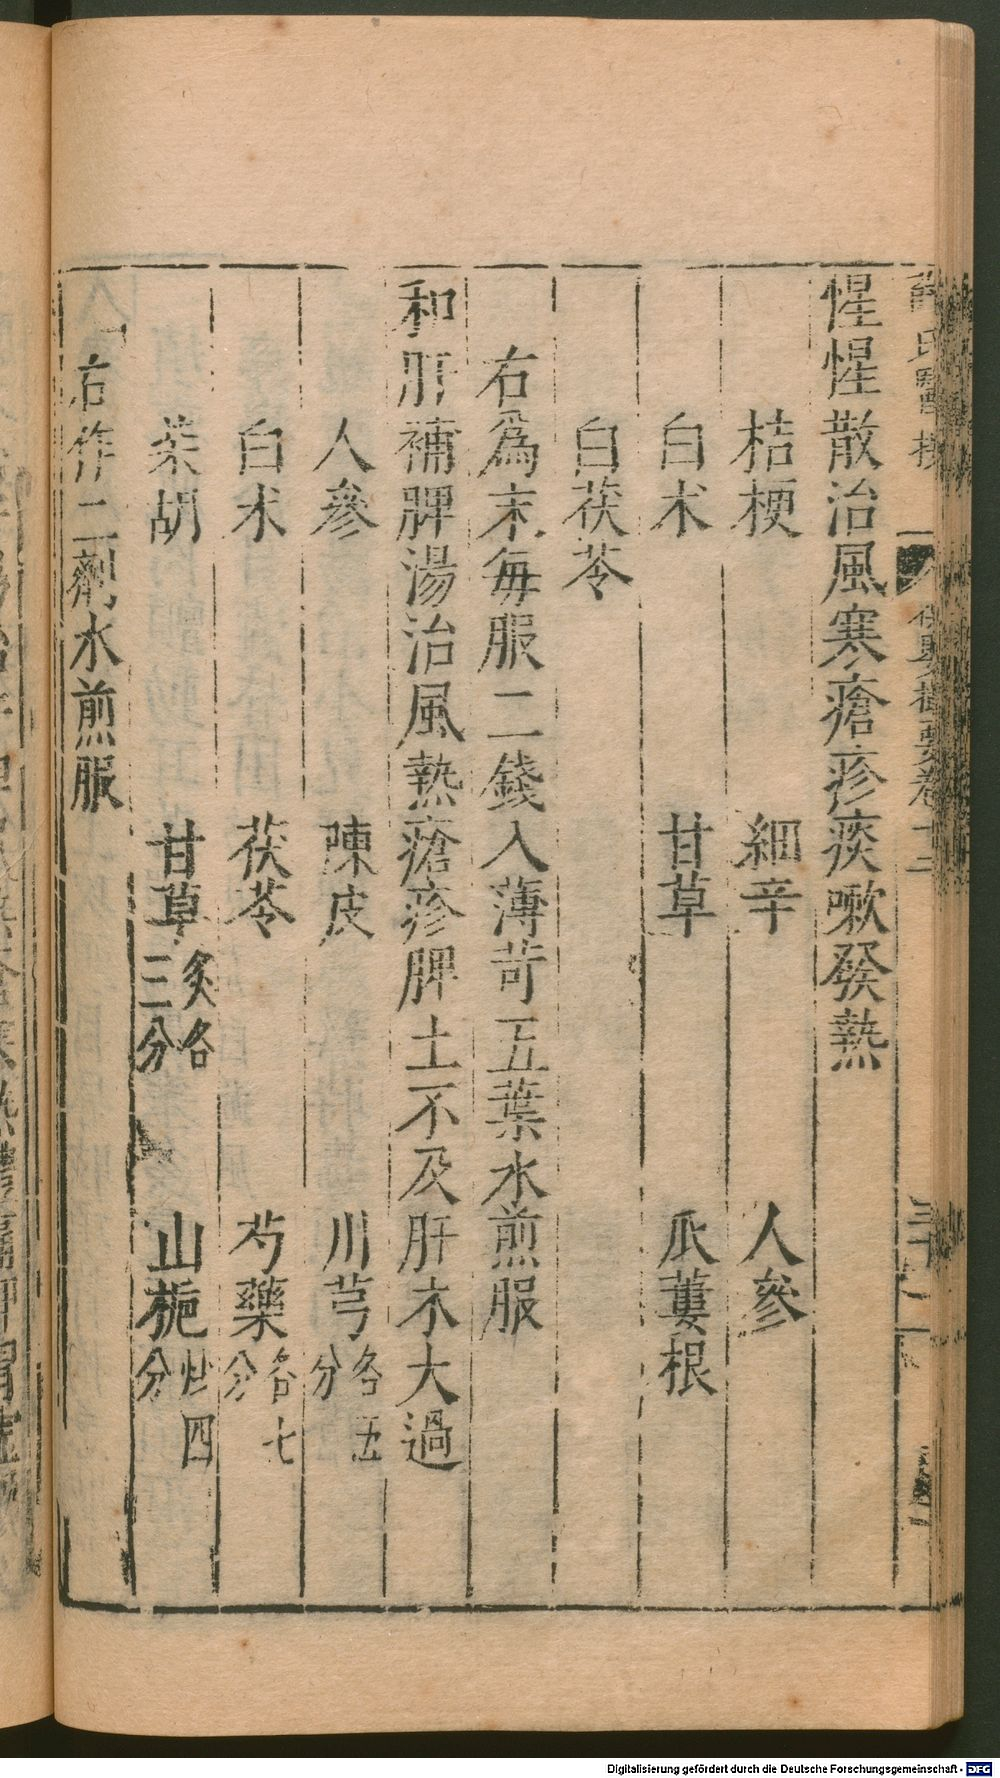 惺惺散治風寒瘡疹痰嗽發熱
桔梗 細辛 人參
白术 甘草 瓜蔞根
白茯苓
右為末每服二錢入薄苛五葉水煎服
和肝補脾湯治風熱瘡疹脾土不及肝木大過
人參 陳皮 川芎各五分
白术 茯苓 芍藥各七分
茱胡 甘草炙各三分 山梔炒四分
右作二劑水煎服
Digitalisierung gefördert durch die Deutsche Forschungsgemeinschaft - DFG